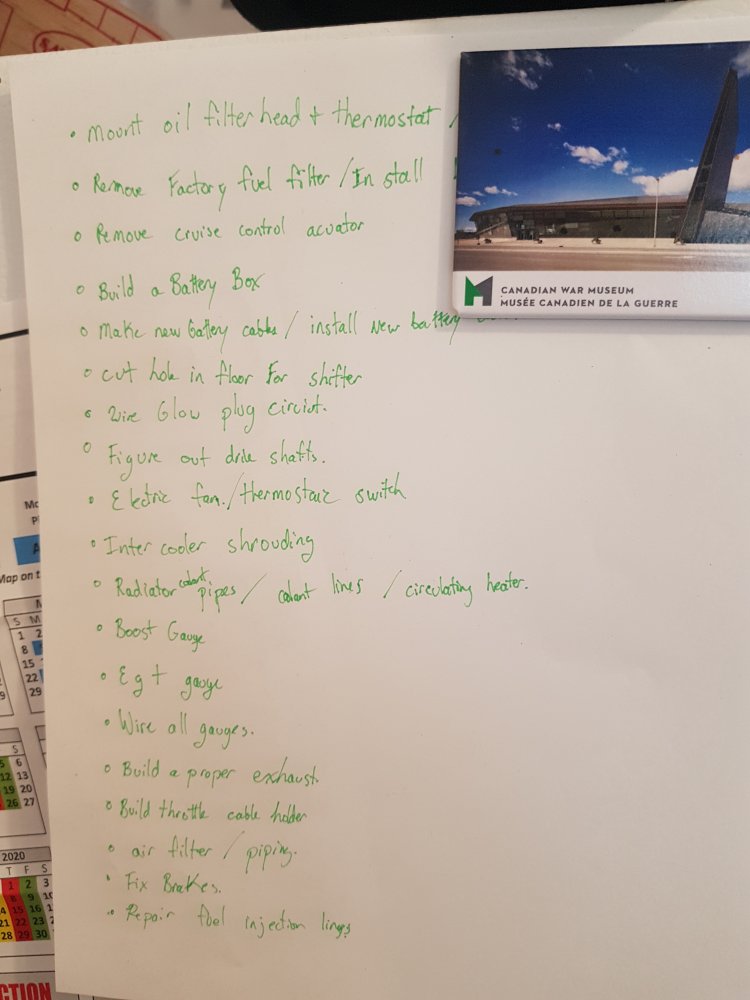 • Mount oil filter head + thermostat /
• Remove Factory fuel filter / Install
• Remove cruise control acuator
• Build a Battery Box
• Make new battery cables / install new battery
• cut hole in floor For shifter
• Wire Glow plug circiut.
• Figure out drive shafts.
• Electric fan. / thermostaic switch
• Inter cooler shrouding
• Radiator colant pipes / colant lines / circulating heater.
• Boost Gauge
• Egt gauge
• Wire all gauges.
• Build a proper exhaust.
• Build throttle cable holder
• air filter / piping.
• Fix Brakes.
• Repair fuel injection lines
CANADIAN WAR MUSEUM
MUSÉE CANADIEN DE LA GUERRE
Map on t
S M
1 2
8
15
22
29
S
5 6
12 13
19 20
26 27
2020
T F S
1 2 3
8 9 10
14 15 16 1
21 22 23 2
28 29 30
CTION